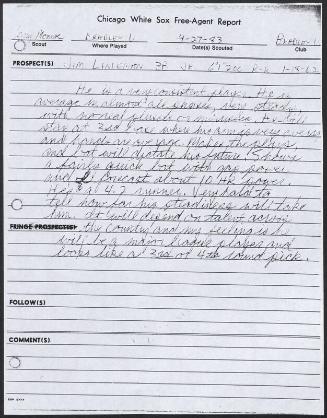 Chicago White Sox Free-Agent Report
Bradley U. 4-27-83 Bradley U.
Scout Where Played Date(s) Scouted Club
PROSPECT(S) Jim Lindeman 3B JR 6'1" 200 R-R 1-10-62
He is a very consistent player. He is
average in almost all phases, very steady
with no real plusses or minuses. He will
stay at 3rd base where his arm is very average
and hands are average. Makes the plays
and bat will dictate his future. Shows
a fairly quick bat with gap power
and I forecast about 10 HR power.
He is a 4.2 runner. Very hard to
tell how far his steadiness will take
him. It will depend on talent across
FRINGE PROSPECT(S) the country and my feeling is he
will be a major league player and
looks like a 3rd or 4th round pick.
FOLLOW(S)
COMMENT(S)